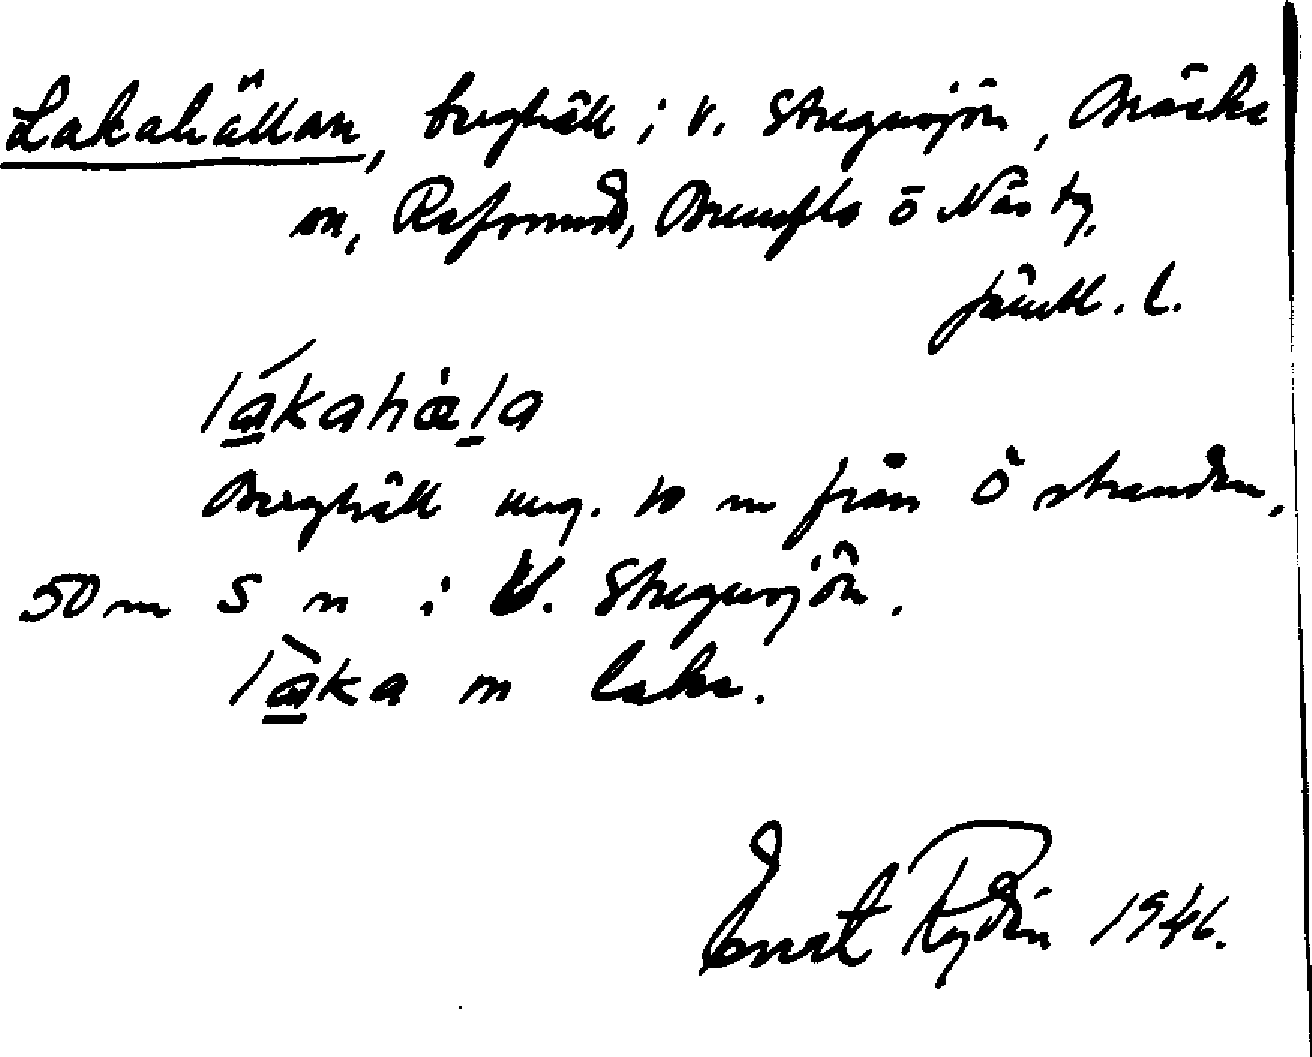 Lakahällan, berghäll i V. Stugusjön, Bräcke
sn, Refsunds, Brunflo o Näs tg,
Jämtl. l.
lákahàla
Berghäll ung. 10 m från Ö stranden,
50 m S n i V. Stugusjön.
làka m lake.
Ernst Rydén 1946.